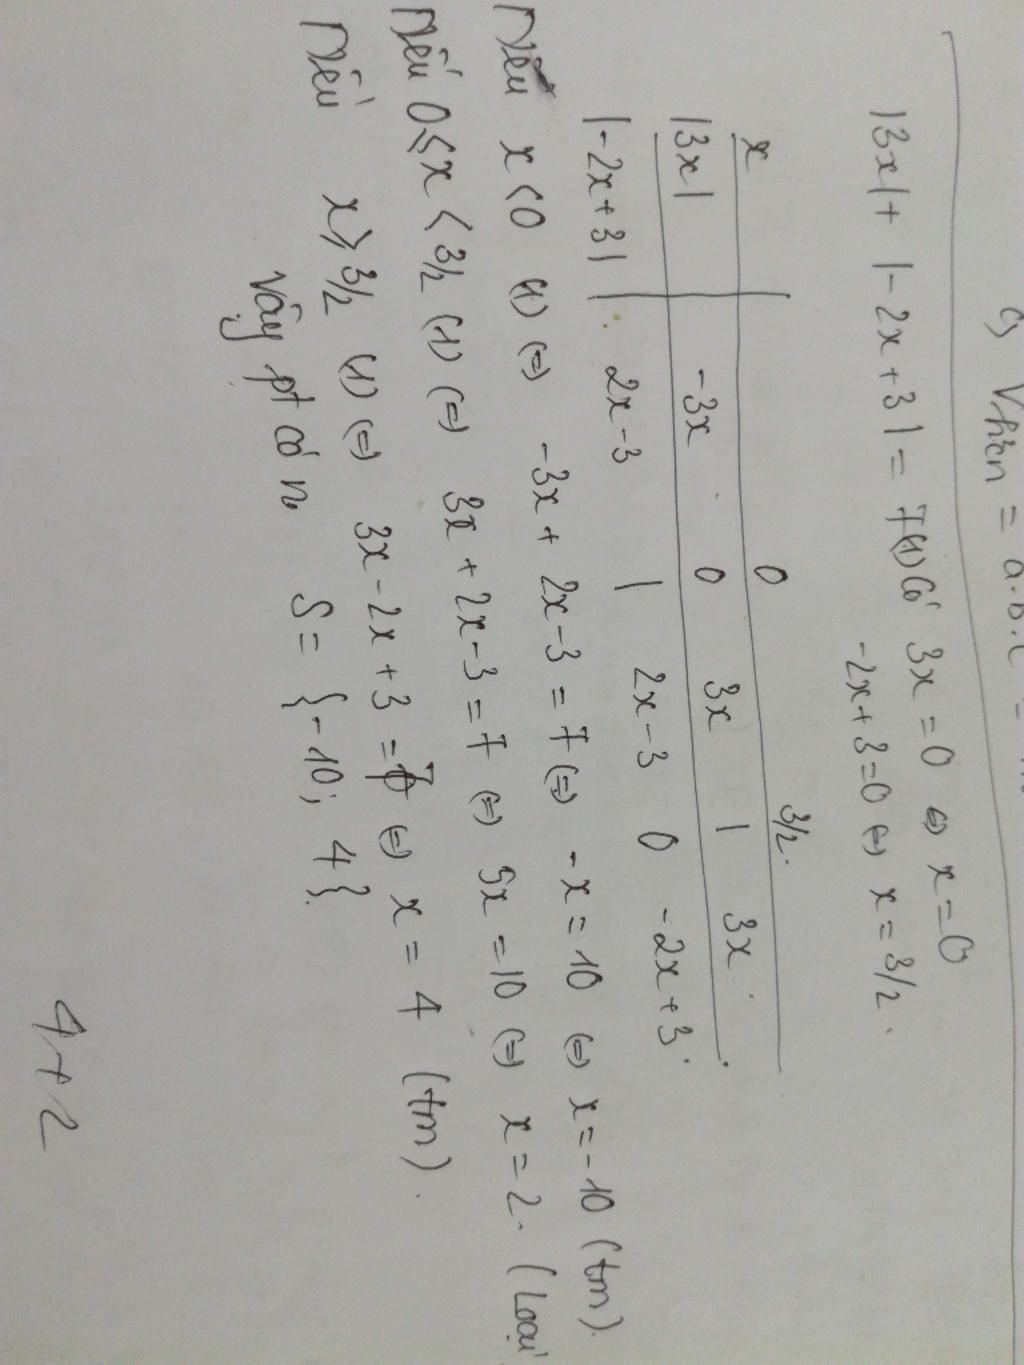 c) Vhcn = a.b.c =
|3x| + |-2x+3| = 7 (1) Có 3x = 0 ⇔ x = 0
-2x+3=0 ⇔ x = 3/2.
x 0 3/2.
|3x| -3x 0 3x | 3x
|-2x+3| 2x-3 | 2x-3 0 -2x+3.
Nếu x<0 (1) ⇔ -3x + 2x-3 = 7 ⇔ -x = 10 ⇔ x = -10 (tm).
Nếu 0≤x<3/2 (1) ⇔ 3x+2x-3=7 ⇔ 5x=10 ⇔ x=2. (Loại
Nếu x≥3/2 (1) ⇔ 3x-2x+3=7 ⇔ x = 4 (tm).
Vậy pt có n S = {-10; 4}.
4+2